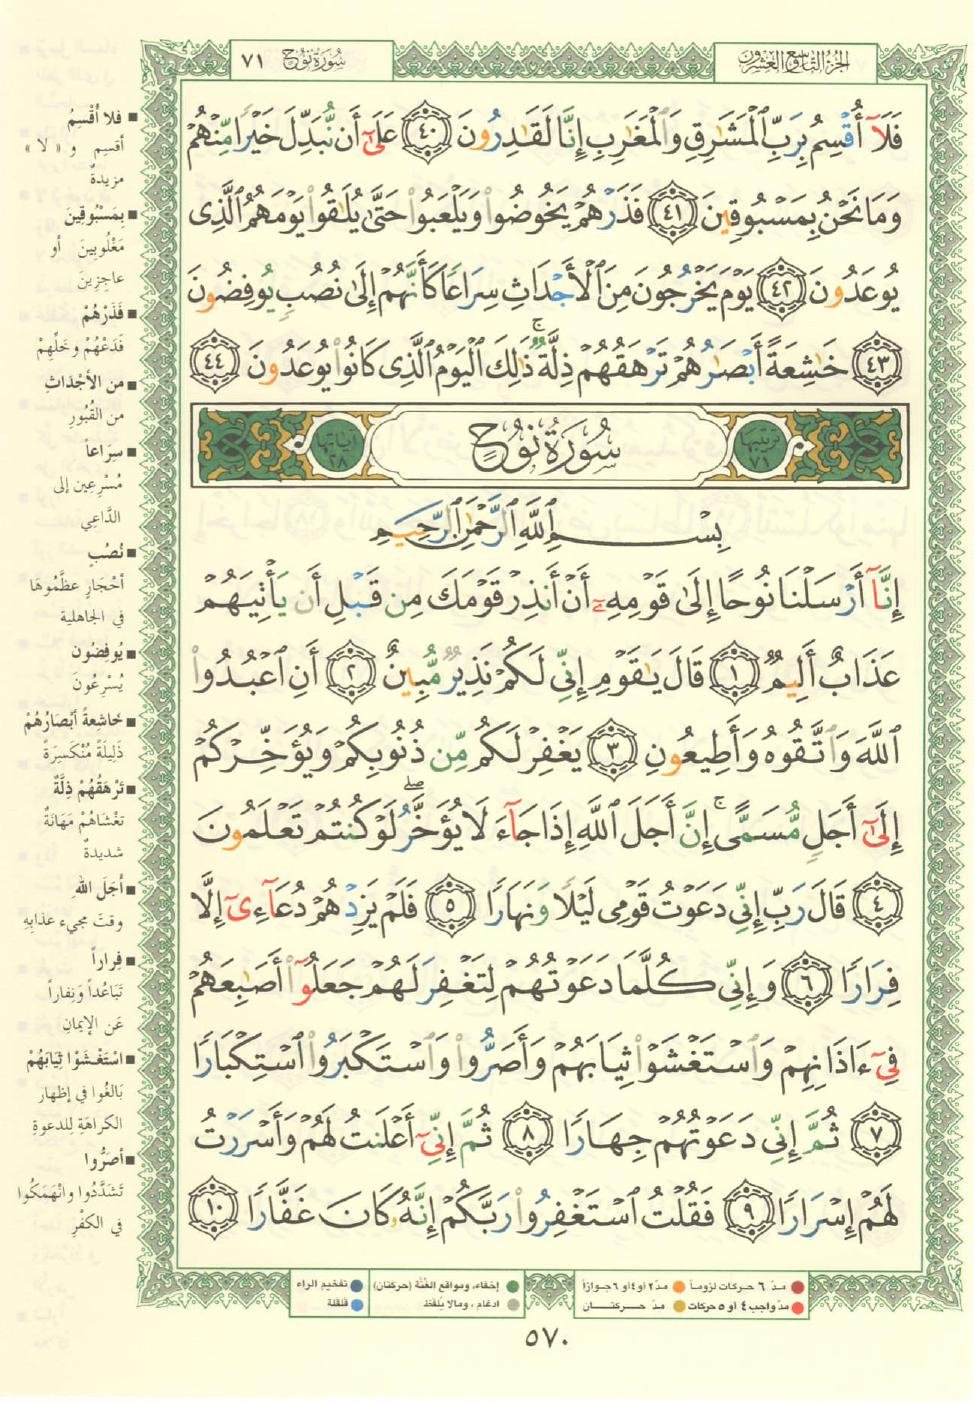 الجزء التاسع والعشرون
سورة نوح ٧١
فَلَآ أُقْسِمُ بِرَبِّ ٱلْمَشَٰرِقِ وَٱلْمَغَٰرِبِ إِنَّا لَقَٰدِرُونَ ٤٠ عَلَىٰٓ أَن نُّبَدِّلَ خَيْرًا مِّنْهُمْ
وَمَا نَحْنُ بِمَسْبُوقِينَ ٤١ فَذَرْهُمْ يَخُوضُوا۟ وَيَلْعَبُوا۟ حَتَّىٰ يُلَٰقُوا۟ يَوْمَهُمُ ٱلَّذِى
يُوعَدُونَ ٤٢ يَوْمَ يَخْرُجُونَ مِنَ ٱلْأَجْدَاثِ سِرَاعًا كَأَنَّهُمْ إِلَىٰ نُصُبٍ يُوفِضُونَ
٤٣ خَٰشِعَةً أَبْصَٰرُهُمْ تَرْهَقُهُمْ ذِلَّةٌ ۚ ذَٰلِكَ ٱلْيَوْمُ ٱلَّذِى كَانُوا۟ يُوعَدُونَ ٤٤
ترتيبها ٧١
سُورَةُ نُوحٍ
آياتها ٢٨
بِسْمِ ٱللَّهِ ٱلرَّحْمَٰنِ ٱلرَّحِيمِ
إِنَّآ أَرْسَلْنَا نُوحًا إِلَىٰ قَوْمِهِۦٓ أَنْ أَنذِرْ قَوْمَكَ مِن قَبْلِ أَن يَأْتِيَهُمْ
عَذَابٌ أَلِيمٌ ١ قَالَ يَٰقَوْمِ إِنِّى لَكُمْ نَذِيرٌ مُّبِينٌ ٢ أَنِ ٱعْبُدُوا۟
ٱللَّهَ وَٱتَّقُوهُ وَأَطِيعُونِ ٣ يَغْفِرْ لَكُم مِّن ذُنُوبِكُمْ وَيُؤَخِّرْكُمْ
إِلَىٰٓ أَجَلٍ مُّسَمًّى ۚ إِنَّ أَجَلَ ٱللَّهِ إِذَا جَآءَ لَا يُؤَخَّرُ ۖ لَوْ كُنتُمْ تَعْلَمُونَ
٤ قَالَ رَبِّ إِنِّى دَعَوْتُ قَوْمِى لَيْلًا وَنَهَارًا ٥ فَلَمْ يَزِدْهُمْ دُعَآءِىٓ إِلَّا
فِرَارًا ٦ وَإِنِّى كُلَّمَا دَعَوْتُهُمْ لِتَغْفِرَ لَهُمْ جَعَلُوٓا۟ أَصَٰبِعَهُمْ
فِىٓ ءَاذَانِهِمْ وَٱسْتَغْشَوْا۟ ثِيَابَهُمْ وَأَصَرُّوا۟ وَٱسْتَكْبَرُوا۟ ٱسْتِكْبَارًا
٧ ثُمَّ إِنِّى دَعَوْتُهُمْ جِهَارًا ٨ ثُمَّ إِنِّىٓ أَعْلَنتُ لَهُمْ وَأَسْرَرْتُ
لَهُمْ إِسْرَارًا ٩ فَقُلْتُ ٱسْتَغْفِرُوا۟ رَبَّكُمْ إِنَّهُۥ كَانَ غَفَّارًا ١٠
■ فلا أُقْسِمُ
أقسم و « لا »
مزيدةٌ
■ بِمَسْبُوقِينَ
مَغْلُوبِينَ أو
عاجِزِينَ
■ فَذَرْهُمْ
فَدَعْهُمْ وخَلِّهِمْ
■ من الأَجْدَاثِ
من القُبُورِ
■ سِرَاعاً
مُسْرِعِين إلى
الدَّاعِي
■ نُصُبٍ
أحْجَارٍ عظَّمُوهَا
في الجاهلية
■ يُوفِضُون
يُسْرِعُونَ
■ خاشِعةً أَبْصَارُهُمْ
ذَلِيلَةً مُنْكَسِرَةً
■ تَرْهَقُهُمْ ذِلَّةٌ
تَغْشَاهُمْ مَهَانَةٌ
شديدةٌ
■ أجَلَ الله
وقتَ مجيء عذابِهِ
■ فِراراً
تَبَاعُداً وَنِفاراً
عَن الإيمانِ
■ اسْتَغْشَوْا ثِيَابَهُمْ
بَالغُوا في إظهار
الكراهَةِ للدعوةِ
■ أصَرُّوا
تَشَدَّدُوا وانْهَمَكُوا
في الكفْرِ
مدّ ٦ حركات لزوماً مدّ ٢ أو ٤ أو ٦ جوازاً
مدّ واجب ٤ أو ٥ حركات مدّ حركتان
إخفاء، ومواقع الغُنَّة (حركتان) تفخيم الراء
ادغام ، ومالا يُلفَظ قلقلة
٥٧٠